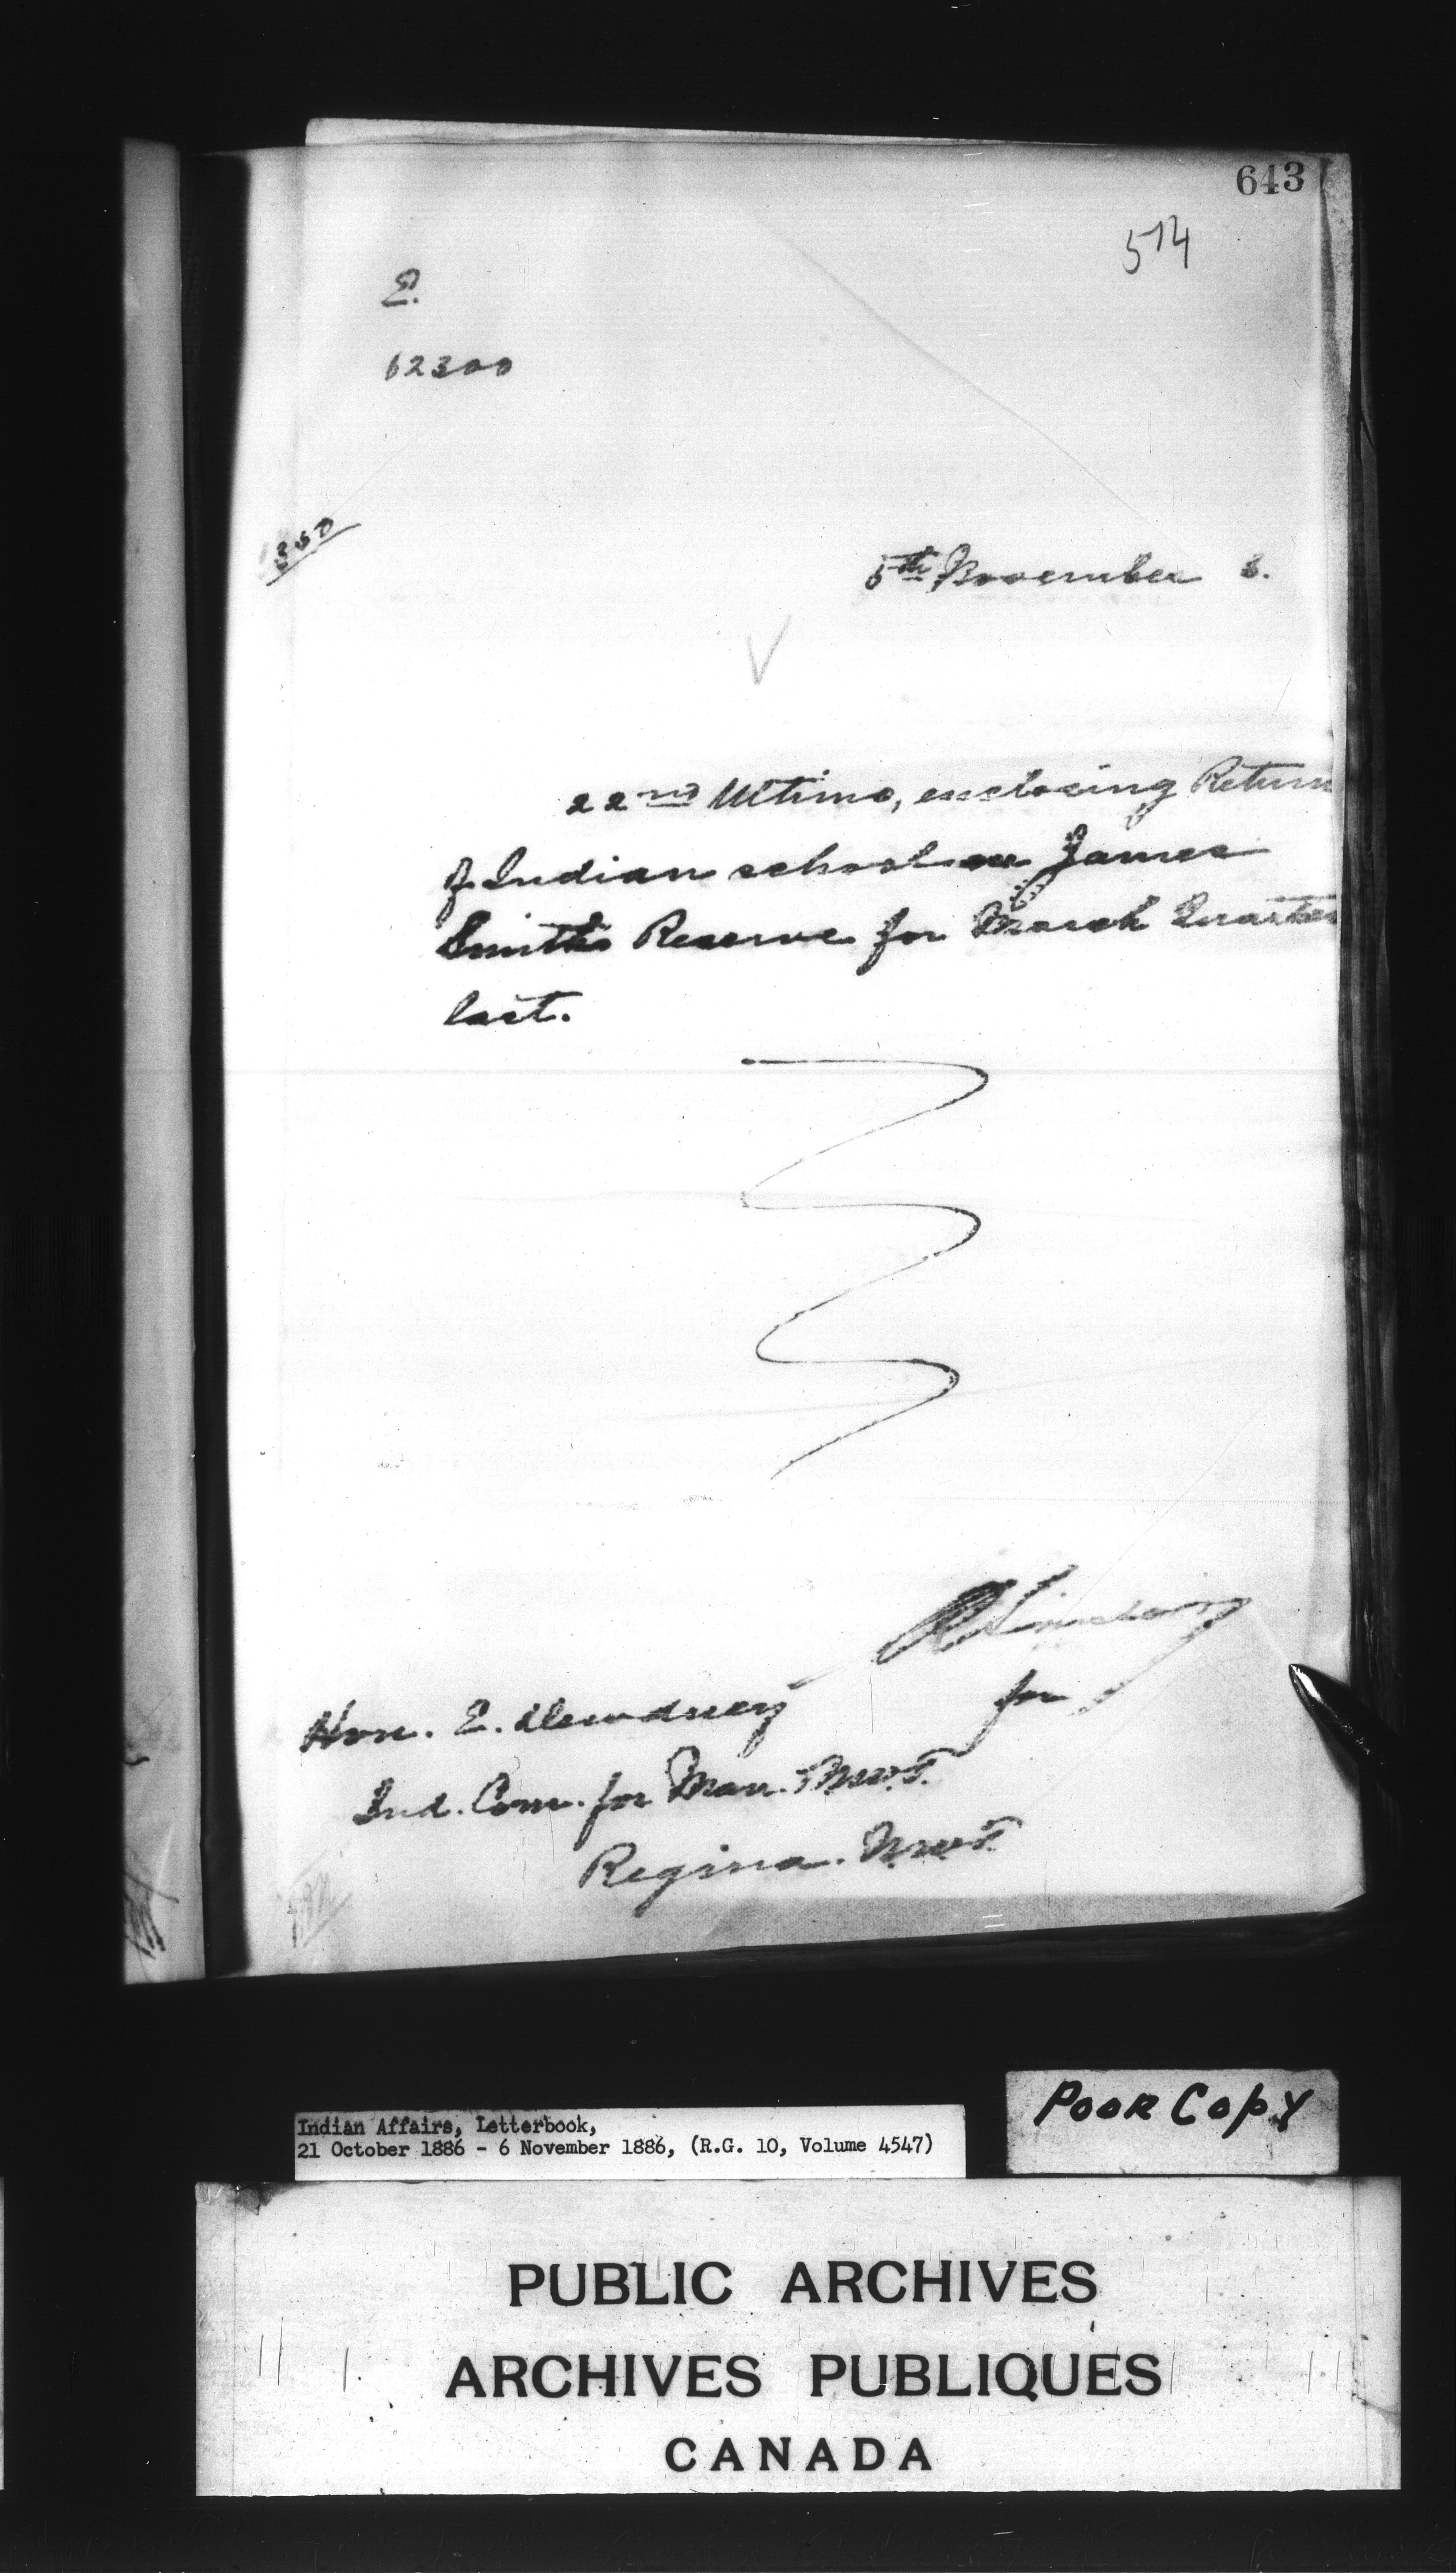 643
514
E.
62300
350
5th November 6.
22nd Ultimo, enclosing Return
of Indian school on James
Smith's Reserve for March Quarter
last.
for
Hon. E. Dewdney
Ind. Com. for Man. & N.W.T.
Regina. N.W.T.
Indian Affairs, Letterbook,
21 October 1886 - 6 November 1886, (R.G. 10, Volume 4547)
POOR COPY
PUBLIC ARCHIVES
ARCHIVES PUBLIQUES
CANADA